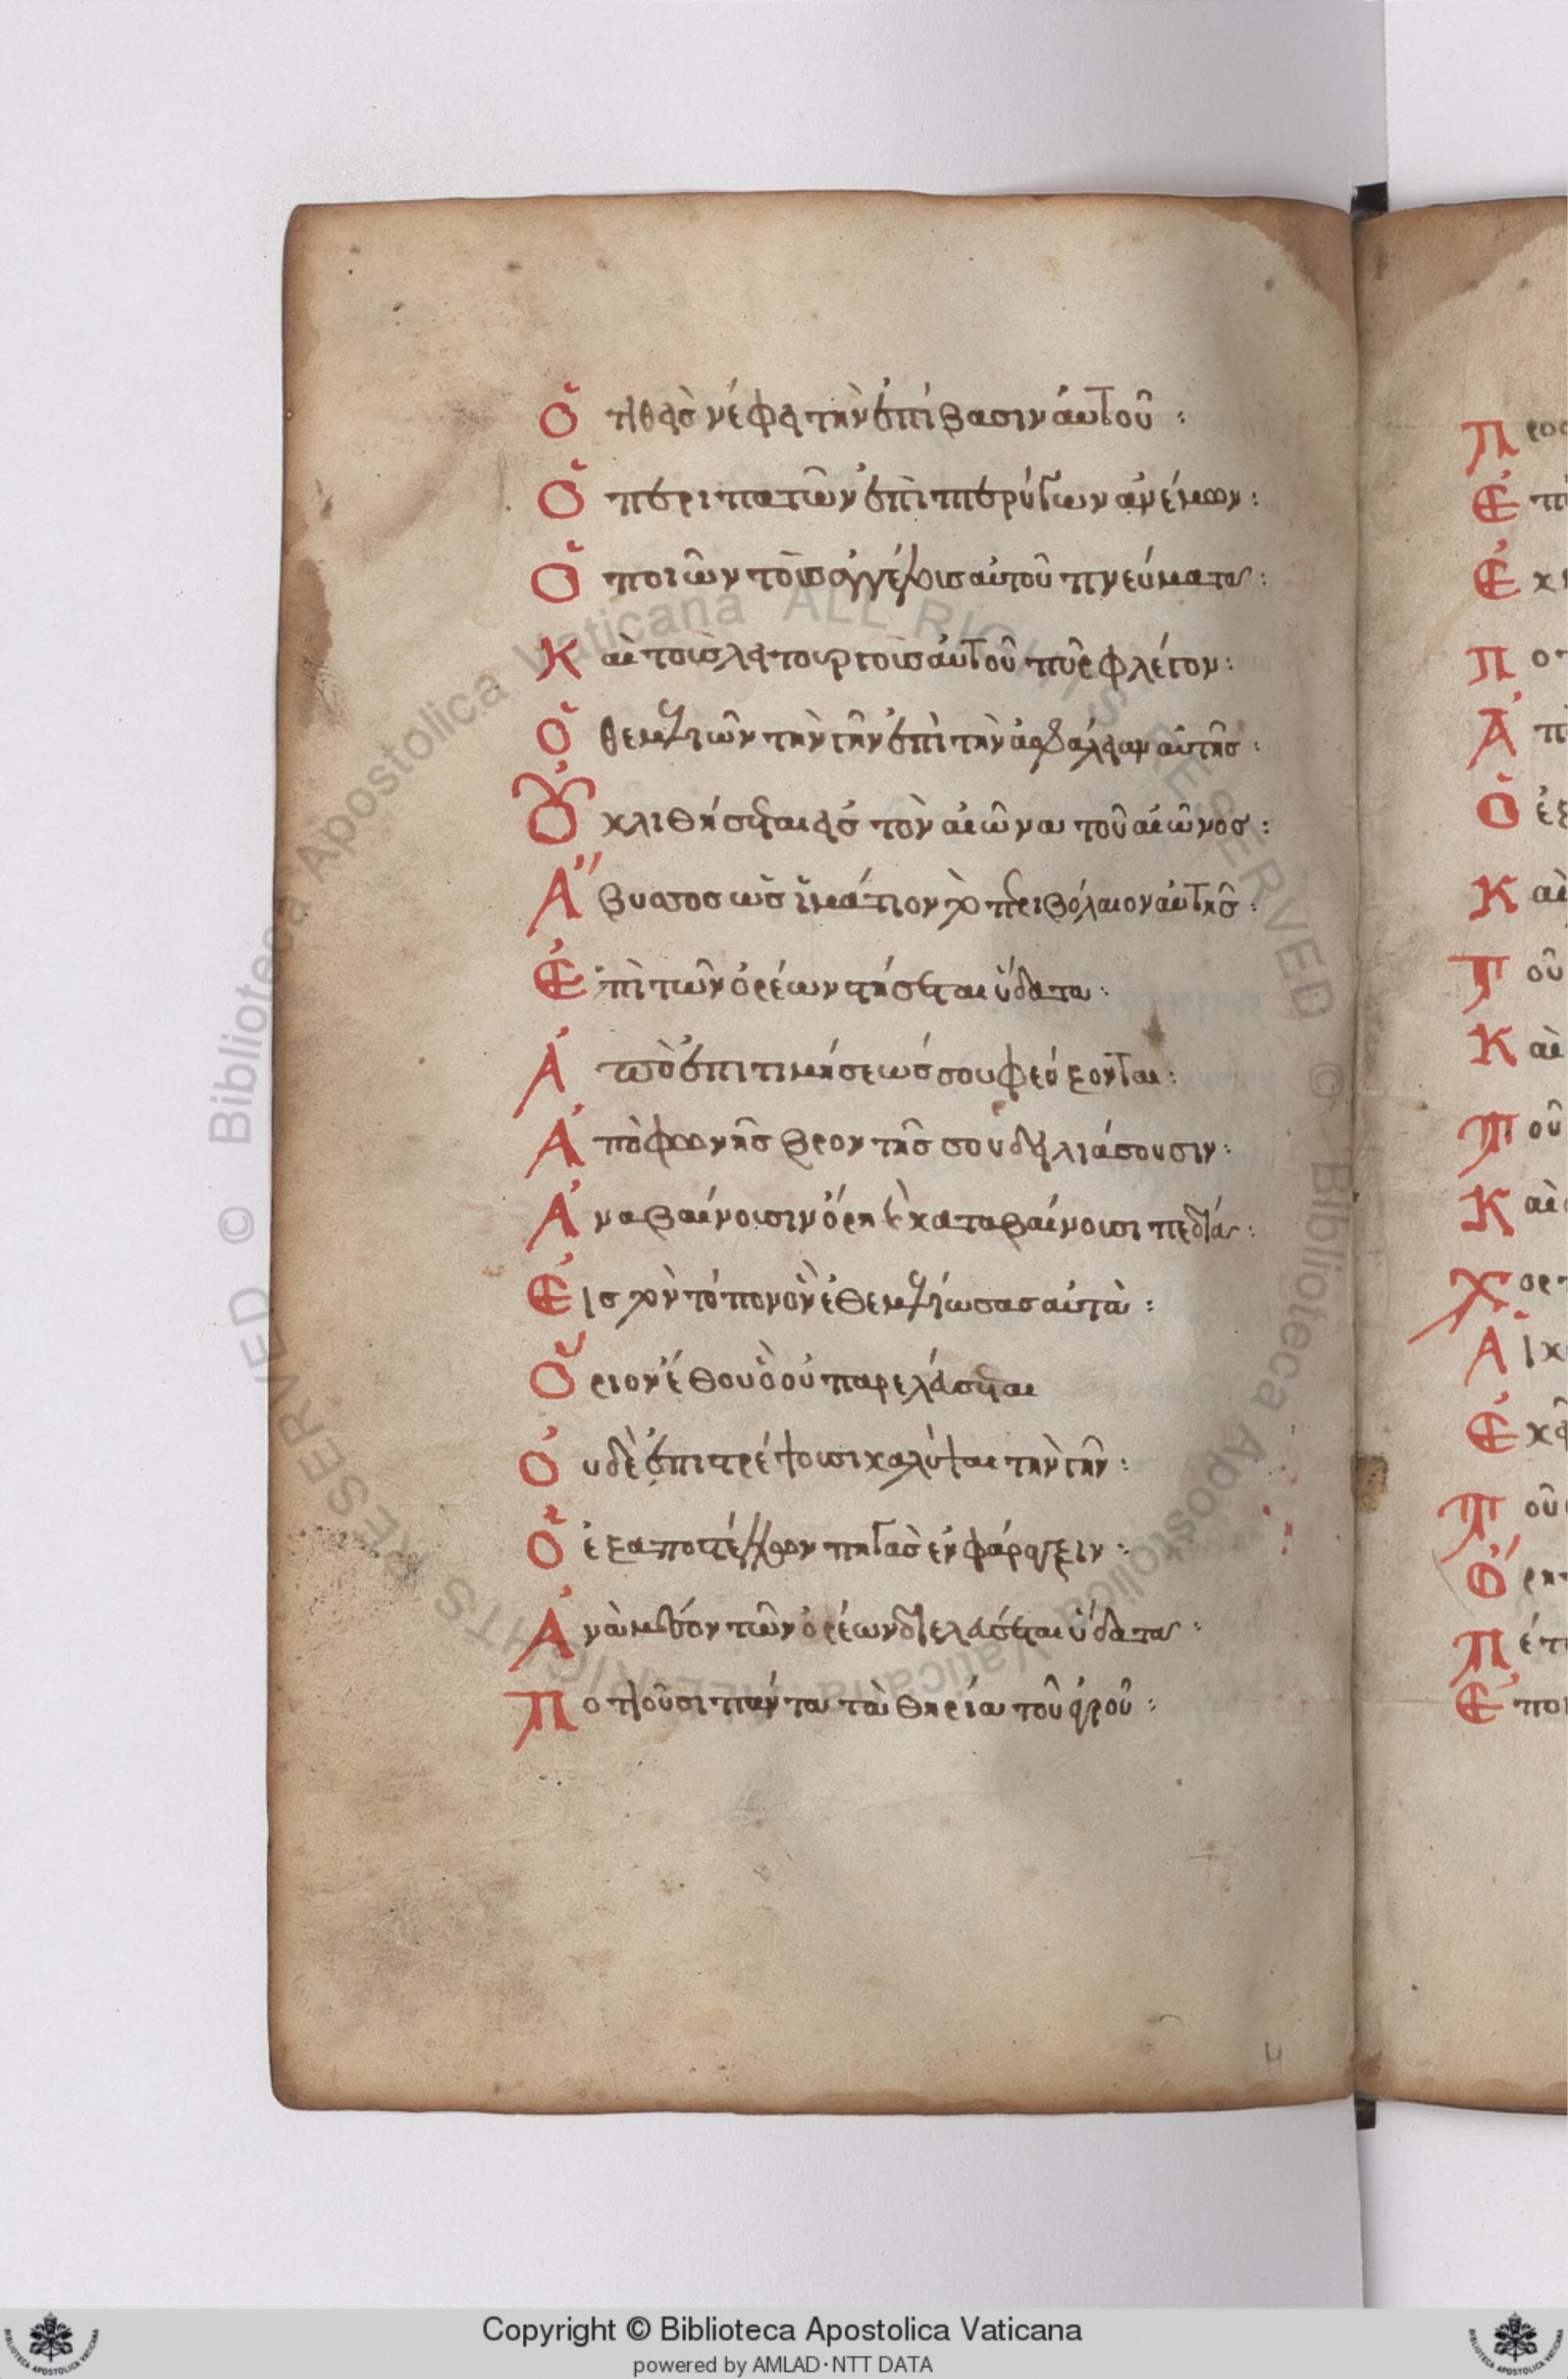 Ὁ τιθεὶς νέφει τὴν ἐπίβασιν αὐτοῦ :
Ὁ περιπατῶν ἐπὶ πτερύγων ἀνέμων :
Ὁ ποιῶν τοὺς ἀγγέλους αὐτοῦ πνεύματα :
Καὶ τοὺς λειτουργοὺς αὐτοῦ πῦρ φλέγον :
Ὁ θεμελιῶν τὴν γῆν ἐπὶ τὴν ἀσφάλειαν αὐτῆς :
Οὐ κλιθήσεται εἰς τὸν αἰῶνα τοῦ αἰῶνος :
Ἄβυσσος ὡς ἱμάτιον τὸ περιβόλαιον αὐτῆς :
Ἐπὶ τῶν ὀρέων στήσεται ὕδατα :
Ἀπὸ ἐπιτιμήσεώς σου φεύξονται :
Ἀπὸ φωνῆς βροντῆς σου δειλιάσουσιν :
Ἀναβαίνουσιν ὄρη καὶ καταβαίνουσι πεδία :
Εἰς τὸν τόπον ὃν ἐθεμελίωσας αὐτὰ :
Ὅριον ἔθου ὃ οὐ παρελεύσεται
Οὐδὲ ἐπιστρέψουσι καλύψαι τὴν γῆν :
Ὁ ἐξαποστέλλων πηγὰς ἐν φάραγξιν :
Ἀνὰ μέσον τῶν ὀρέων διελεύσεται ὕδατα :
Ποτιοῦσι πάντα τὰ θηρία τοῦ ἀγροῦ :
Copyright © Biblioteca Apostolica Vaticana
powered by AMLAD·NTT DATA